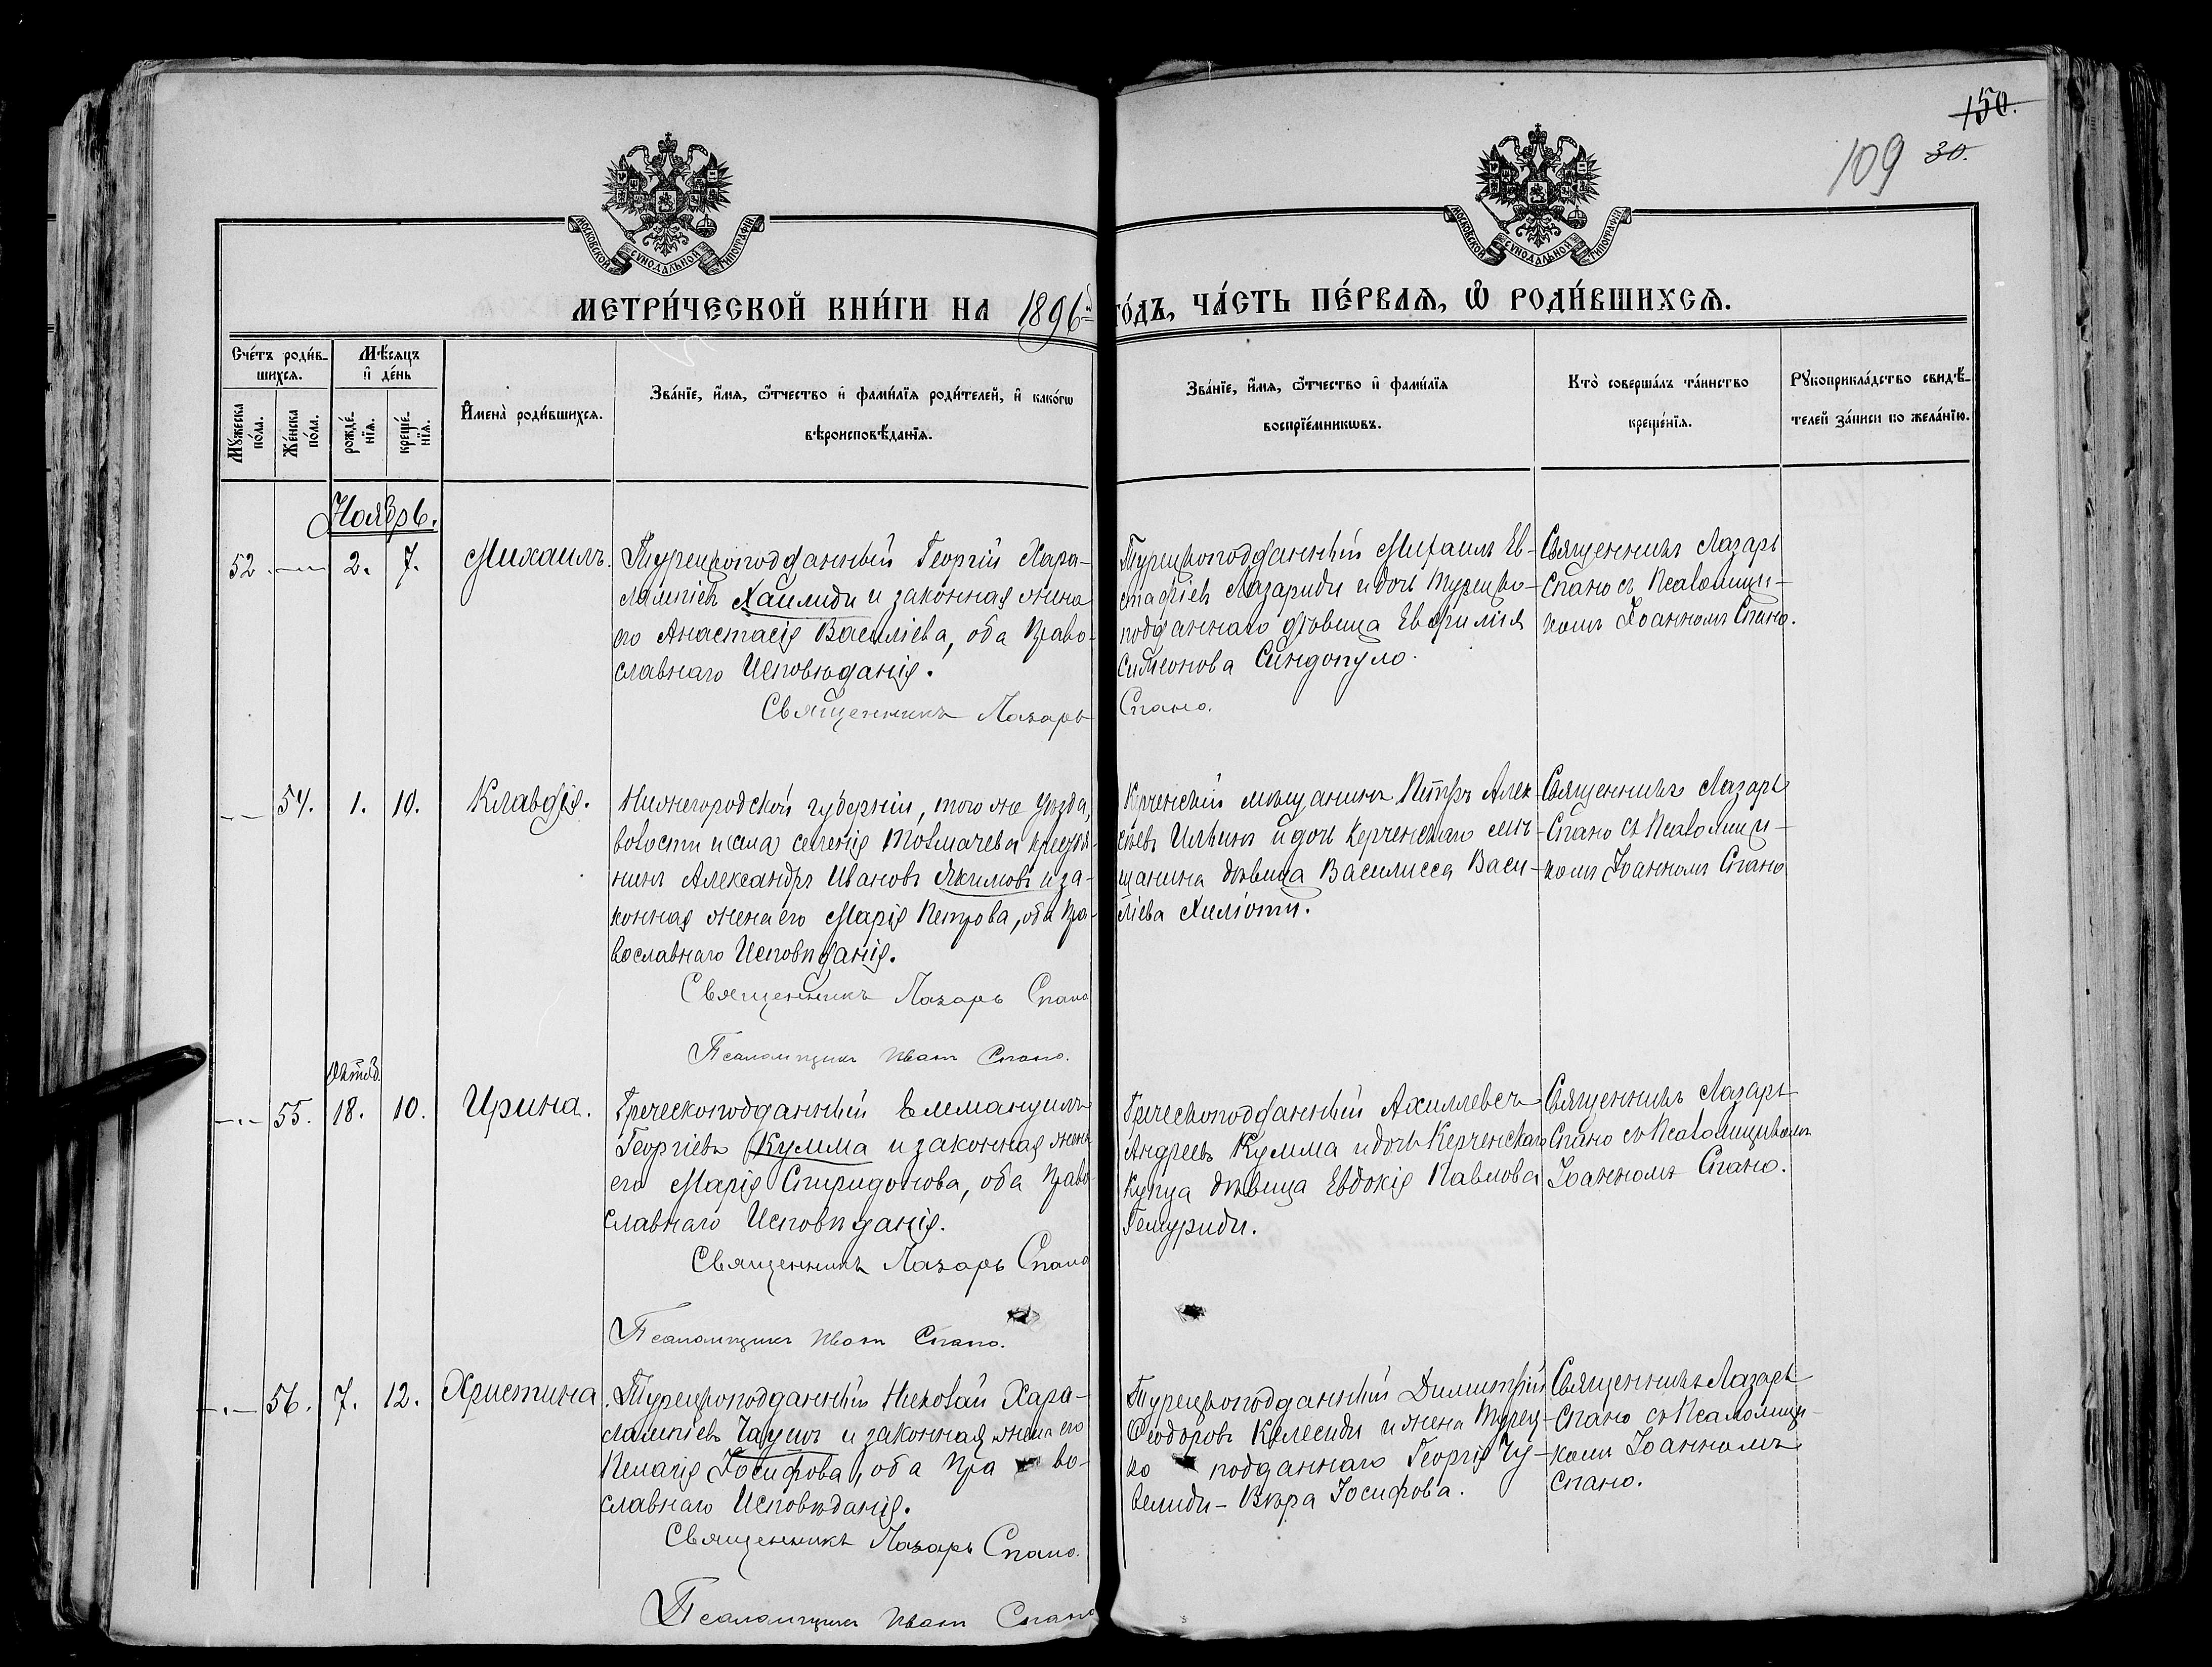 150.
109 30.
МОСКОВСКОЙ СУНОДАЛЬНОЙ ТИПОГРАФІИ
МОСКОВСКОЙ СУНОДАЛЬНОЙ ТИПОГРАФІИ
МЕТРИ́ЧЕСКОЙ КНИ́ГИ НА 1896й ГО́ДЪ, ЧА́СТЬ ПЕ́РВАЯ, Ѡ РОДИ́ВШИХСЯ.
Сче́тъ роди́в-
шихся.
Мѣ́сяцъ
и де́нь
Му́жеска по́ла.
Же́нска по́ла.
рожде́-
нїя.
креще́-
нїя.
Имена̀ роди́вшихся.
Зва́нїе, и́мя, ѻ҆́тчество и фами́лїя роди́телей, и како́гѡ
вѣроисповѣ́данїя.
Зва́нїе, и́мя, ѻ҆́тчество и фами́лїя
воспрїе́мникѡвъ.
Кто̀ соверша́лъ та́инство
креще́нїя.
Рукоприкла́дство свидѣ́-
телей за́писи по жела́нїю.
Ноябрь.
52. — 2. 7. Михаилъ.
Турецкоподданный Георгій Хара-
лампіевъ Хаилиди и законная жена
его Анастасія Василіева, оба Право-
славнаго Исповѣданія.
Священникъ Лазарь
Спано.
Турецкоподданный Михаилъ Ев-
стафіевъ Лазариди и дочь турецко-
подданнаго дѣвица Евфимія
Симеонова Синдопуло.
Священникъ Лазарь
Спано съ Псаломщи-
комъ Іоанномъ Спано.
— 54. 1. 10. Клавдія.
Нижегородской губерніи, того же уѣзда,
волости и села) селенія Толмачева крестья-
нинъ Александръ Ивановъ Якимовъ и за-
конная жена его Марія Петрова, оба Пра-
вославнаго Исповѣданія.
Священникъ Лазарь Спано
Псаломщикъ Иванъ Спано.
Керченскій мѣщанинъ Петръ Алек-
сѣевъ Ильинъ и дочь Керченскаго мѣ-
щанина дѣвица Василисса Васи-
ліева Хиліоти.
Священникъ Лазарь
Спано съ Псаломщи-
комъ Іоанномъ Спано
Октяб.
— 55. 18. 10. Ирина.
Греческоподданный Еммануилъ
Георгіевъ Кулима и законная жена
его Марія Спиридонова, оба Право-
славнаго Исповѣданія.
Священникъ Лазарь Спано
Псаломщикъ Иванъ Спано.
Греческоподданный Ахиллевсъ
Андреевъ Кулима и дочь Керченскаго
Купца дѣвица Евдокія Павлова
Гемуриди.
Священникъ Лазарь
Спано съ Псаломщикомъ
Іоанномъ Спано.
— 56. 7. 12. Христина.
Турецкоподданный Николай Хара-
лампіевъ Чаушъ и законная жена его
Пелагія Іосифова, оба Пра во-
славнаго Исповѣданія.
Священникъ Лазарь Спано.
Псаломщикъ Иванъ Спано
Турецкоподданный Димитрій
Ѳеодоровъ Келесиди и жена Турец-
ко подданнаго Георгія Чу-
велиди - Вѣра Іосифова.
Священникъ Лазарь
Спано съ Псаломщи-
комъ Іоанномъ
Спано.